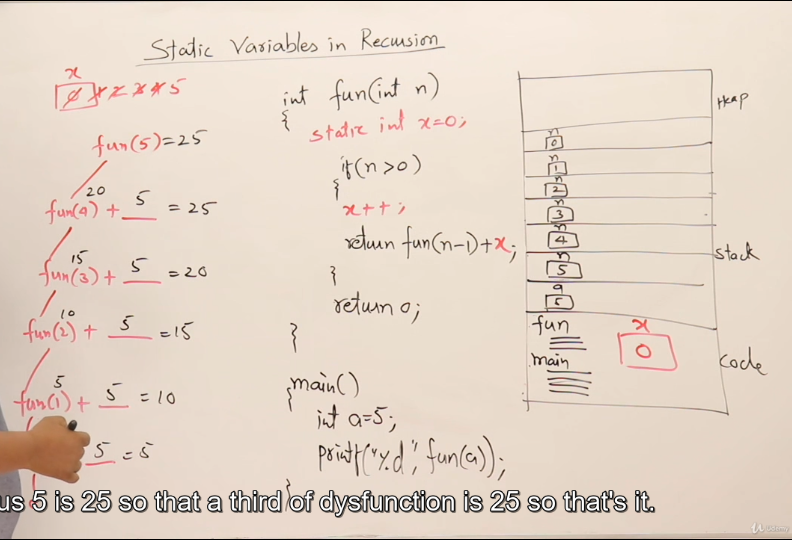 Static Variables in Recursion
x
0 1 2 3 4 5
fun(5) = 25
20
fun(4) + 5 = 25
15
fun(3) + 5 = 20
10
fun(2) + 5 = 15
5
fun(1) + 5 = 10
5 = 5
int fun(int n)
{
static int x=0;
if(n>0)
{
x++;
return fun(n-1)+x;
}
return 0;
}
main()
{
int a=5;
printf("%d", fun(a));
}
Heap
n
0
n
1
n
2
n
3
n
4
n
5
a
5
stack
fun
main
x
0
code
us 5 is 25 so that a third of dysfunction is 25 so that's it.
Udemy